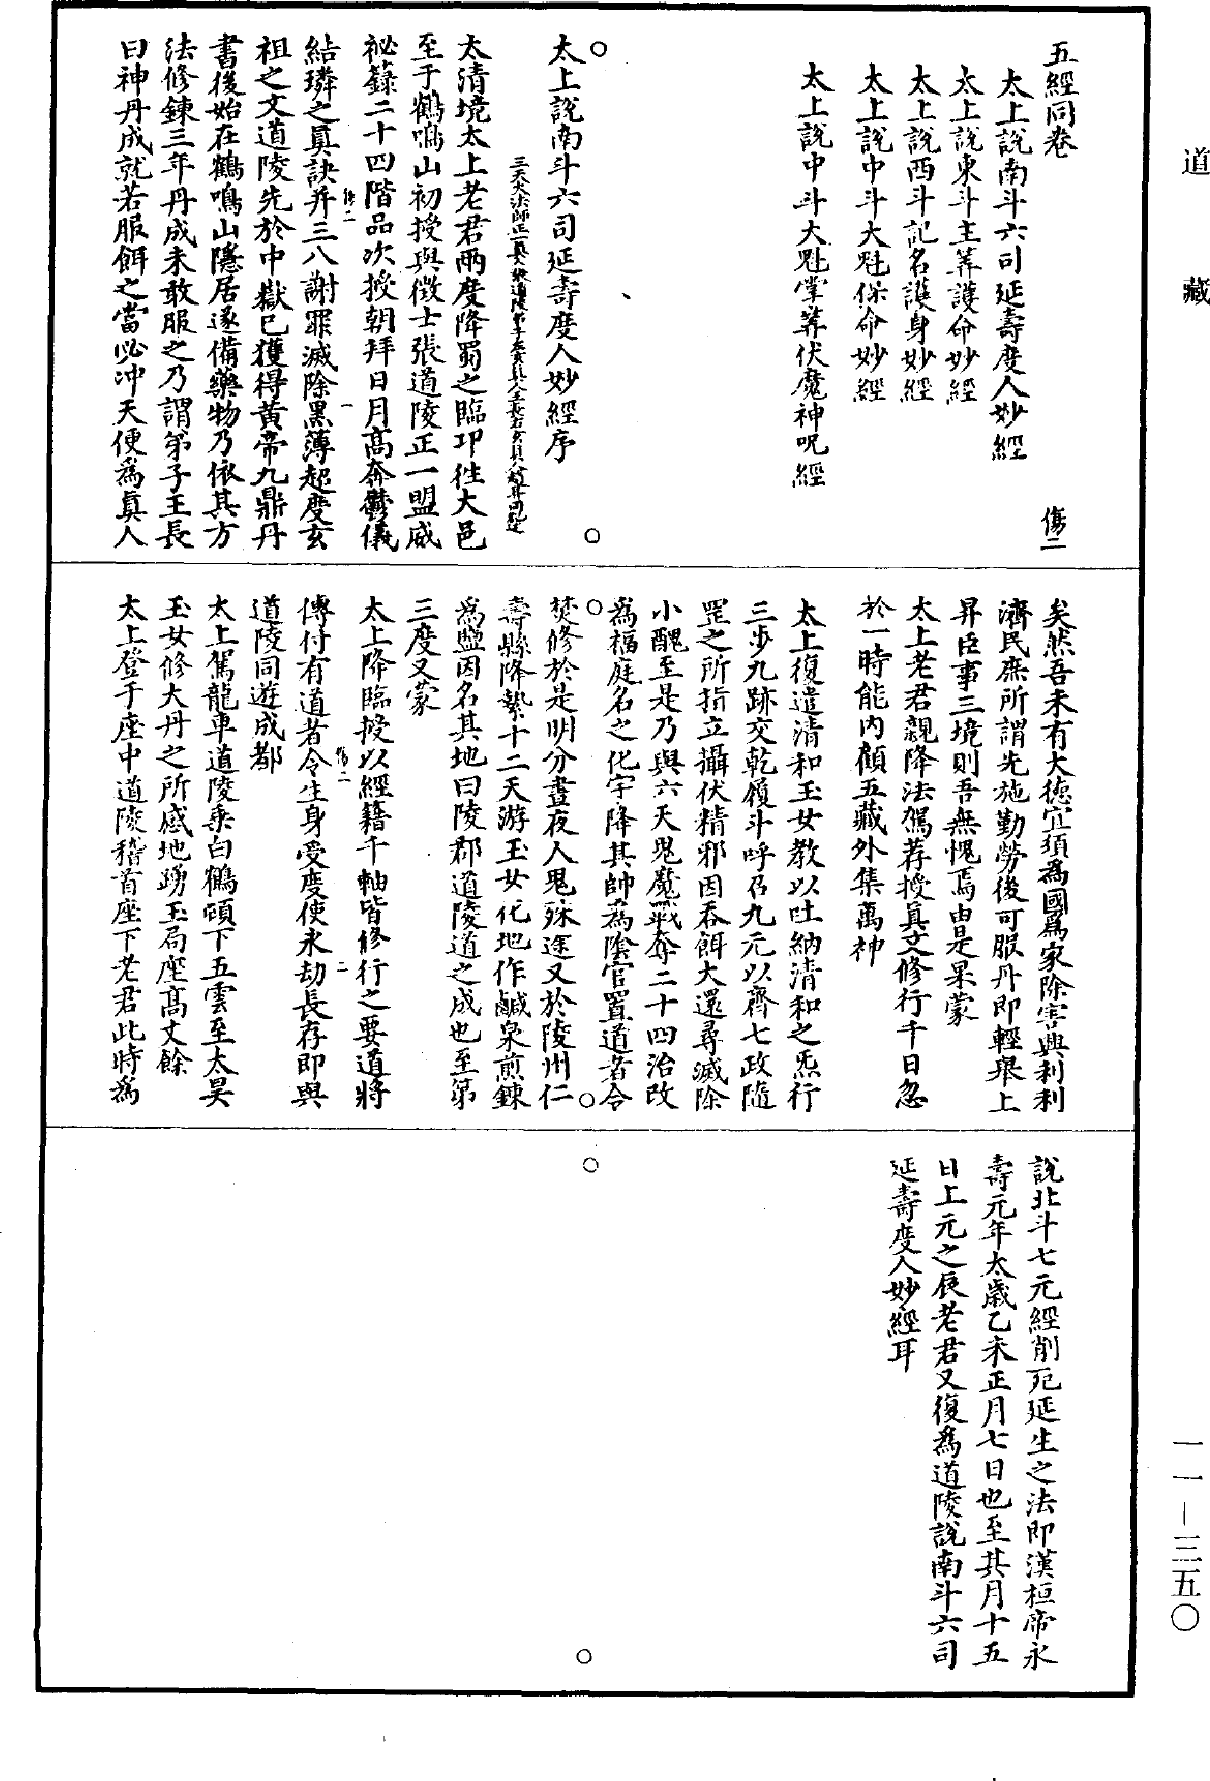 道藏
五經同卷　傷二
太上說南斗六司延壽度人妙經
太上說東斗主筭護命妙經
太上說西斗記名護身妙經
太上說中斗大魁保命妙經
太上說中斗大魁掌筭伏魔神呪經
太上說南斗六司延壽度人妙經序
三天大法師正一真人張道陵弟子
太清境太上老君兩度降蜀之臨邛往大邑
至于鶴鳴山初授與徵士張道陵正一盟威
祕籙二十四階品次授朝拜日月高奔鬱儀
結璘之眞訣并三八謝罪滅除黑薄超度玄
祖之文道陵先於中嶽已獲得黃帝九鼎丹
書後始在鶴鳴山隱居遂備藥物乃依其方
法修鍊三年丹成未敢服之乃謂弟子王長
曰神丹成就若服餌之當必冲天便爲眞人
矣然吾未有大德宜須爲國爲家除害興利利
濟民庶所謂先施勤勞後可服丹即輕舉上
昇臣事三境則吾無愧焉由是果蒙
太上老君親降法駕荐授眞文修行千日忽
於一時能內顧五藏外集萬神
太上復遣清和玉女敎以吐納清和之炁行
三步九跡交乾履斗呼召九元以齊七政隨
罡之所指立攝伏精邪因吞餌大還尋滅除
小醜至是乃與六天鬼魔戰奪二十四治改
爲福庭名之化宇降其帥爲陰官置道者合
焚修於是明分晝夜人鬼殊途又於陵州仁
壽縣降縶十二天游玉女化地作鹹泉煎鍊
爲鹽因名其地曰陵郡道陵道之成也至第
三度又蒙
太上降臨授以經籍千軸皆修行之要道將
傳付有道者令生身受度使永劫長存即與
道陵同遊成都
太上駕龍車道陵乘白鶴頓下五雲至太昊
玉女修大丹之所感地踴玉局座高丈餘
太上登于座中道陵稽首座下老君此時爲
說北斗七元經削死延生之法即漢桓帝永
壽元年太歲乙未正月七日也至其月十五
日上元之辰老君又復爲道陵說南斗六司
延壽度人妙經耳
一一－三五〇